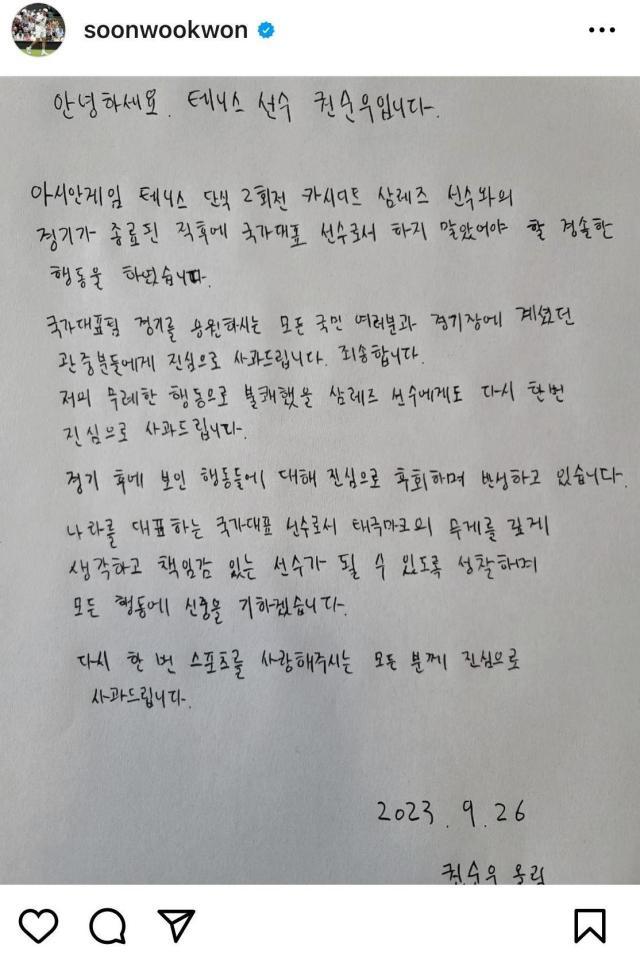 soonwookwon
안녕하세요. 테니스 선수 권순우입니다.
아시안게임 테니스 단식 2회전 카시디트 삼레즈 선수와의
경기가 종료된 직후에 국가대표 선수로서 하지 말았어야 할 경솔한
행동을 하였습니다.
국가대표팀 경기를 응원하시는 모든 국민 여러분과 경기장에 계셨던
관중분들에게 진심으로 사과드립니다. 죄송합니다.
저의 무례한 행동으로 불쾌했을 삼레즈 선수에게도 다시 한번
진심으로 사과드립니다.
경기 후에 보인 행동들에 대해 진심으로 후회하며 반성하고 있습니다.
나라를 대표하는 국가대표 선수로서 태극마크의 무게를 깊게
생각하고 책임감 있는 선수가 될 수 있도록 성찰하며
모든 행동에 신중을 기하겠습니다.
다시 한 번 스포츠를 사랑해주시는 모든 분께 진심으로
사과드립니다.
2023. 9. 26
권순우 올림